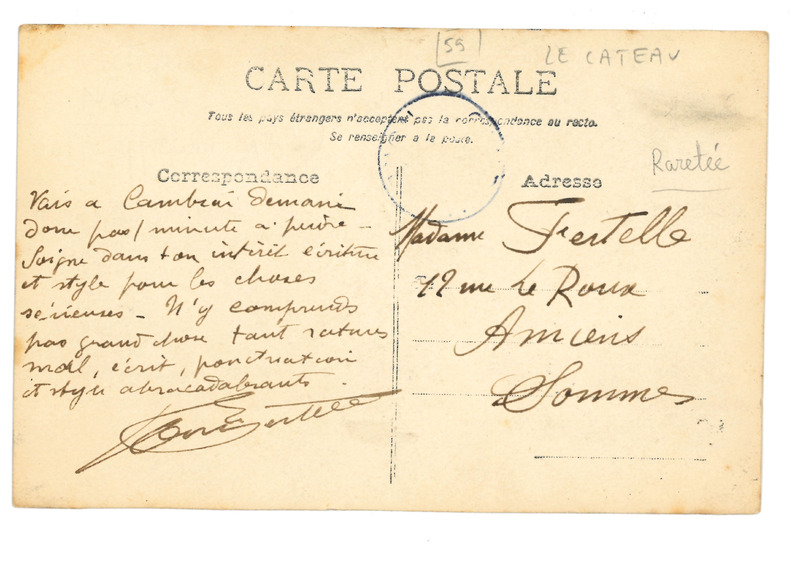 59
LE CATEAU
CARTE POSTALE
Tous les pays étrangers n'acceptent pas la correspondance au recto.
Se renseigner a la poste.
Raretée
Correspondance
Vais a Cambrai demain
donc pas 1 minute a perdre -
Soigne dans ton intérêt écriture
et style pour les choses
sérieuses - N'y comprends
pas grand chose tant ratures
mal, écrit, ponctuation
et style abracadabrants.
Fertelle
Adresse
Madame Fertelle
12 rue Le Roux
Amiens
Somme